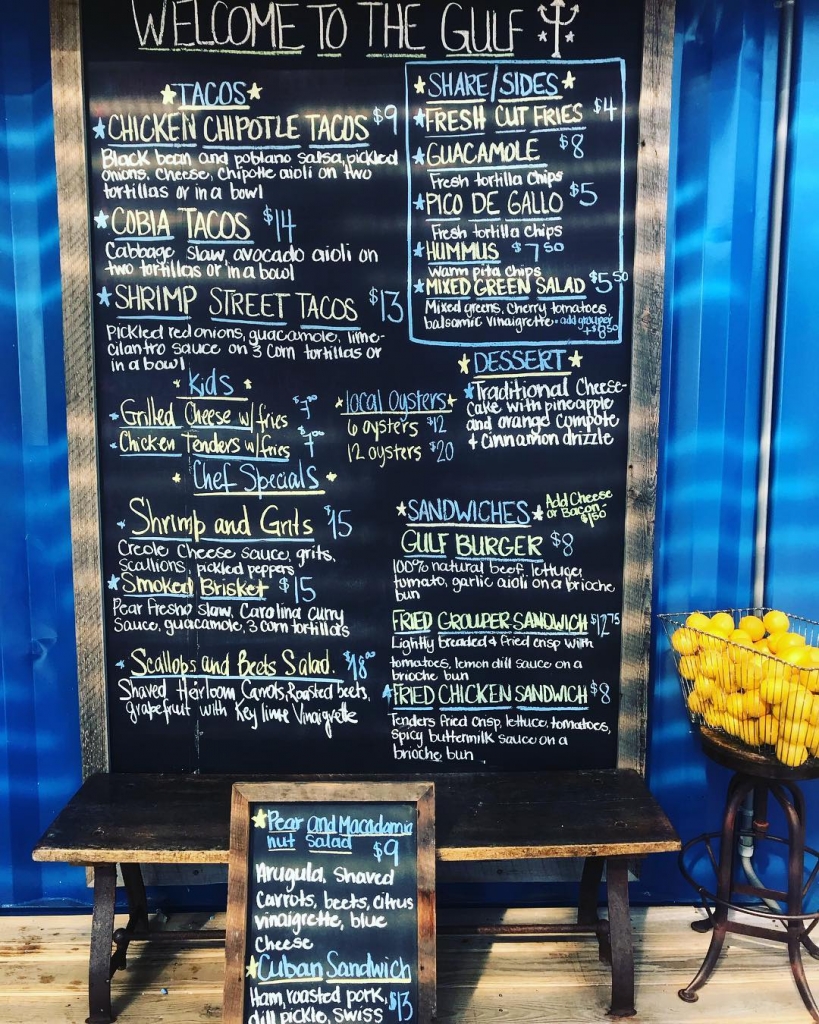 WELCOME TO THE GULF
TACOS
CHICKEN CHIPOTLE TACOS $9
Black bean and poblano salsa, pickled
onions, cheese, chipotle aioli on two
tortillas or in a bowl
COBIA TACOS $14
Cabbage slaw, avocado aioli on
two tortillas or in a bowl
SHRIMP STREET TACOS $13
Pickled red onions, guacamole, lime-
cilantro sauce on 3 corn tortillas or
in a bowl
SHARE/SIDES
FRESH CUT FRIES $4
GUACAMOLE $8
Fresh tortilla chips
PICO DE GALLO $5
Fresh tortilla chips
HUMMUS $7 50
warm pita chips
MIXED GREEN SALAD $5 50
Mixed greens, cherry tomatoes
balsamic vinaigrette - add grouper
+$8 50
kids
Grilled Cheese w/ fries
Chicken Tenders w/ fries
local oysters
6 oysters $12
12 oysters $20
DESSERT
Traditional Cheese-
cake with pineapple
and orange compote
+ cinnamon drizzle
Chef Specials
Shrimp and Grits $15
Creole cheese sauce, grits,
scallions, pickled peppers
Smoked Brisket $15
Pear fresno slaw, Carolina curry
Sauce, guacamole, 3 corn tortillas
Scallops and Beets Salad. $18
Shaved Heirloom Carrots, Roasted beets,
grapefruit with Key lime Vinaigrette
SANDWICHES
Add Cheese
or Bacon
$1 50
GULF BURGER $8
100% natural beef, lettuce,
tomato, garlic aioli on a brioche
bun
FRIED GROUPER SANDWICH $12 75
Lightly breaded + fried crisp with
tomatoes, lemon dill sauce on a
brioche bun
FRIED CHICKEN SANDWICH $8
Tenders fried crisp, lettuce, tomatoes,
spicy buttermilk sauce on a
brioche bun
Pear and Macadamia
nut Salad $9
Arugula, Shaved
Carrots, beets, citrus
vinaigrette, blue
Cheese
Cuban Sandwich
Ham, roasted pork, $13
dill pickle, swiss